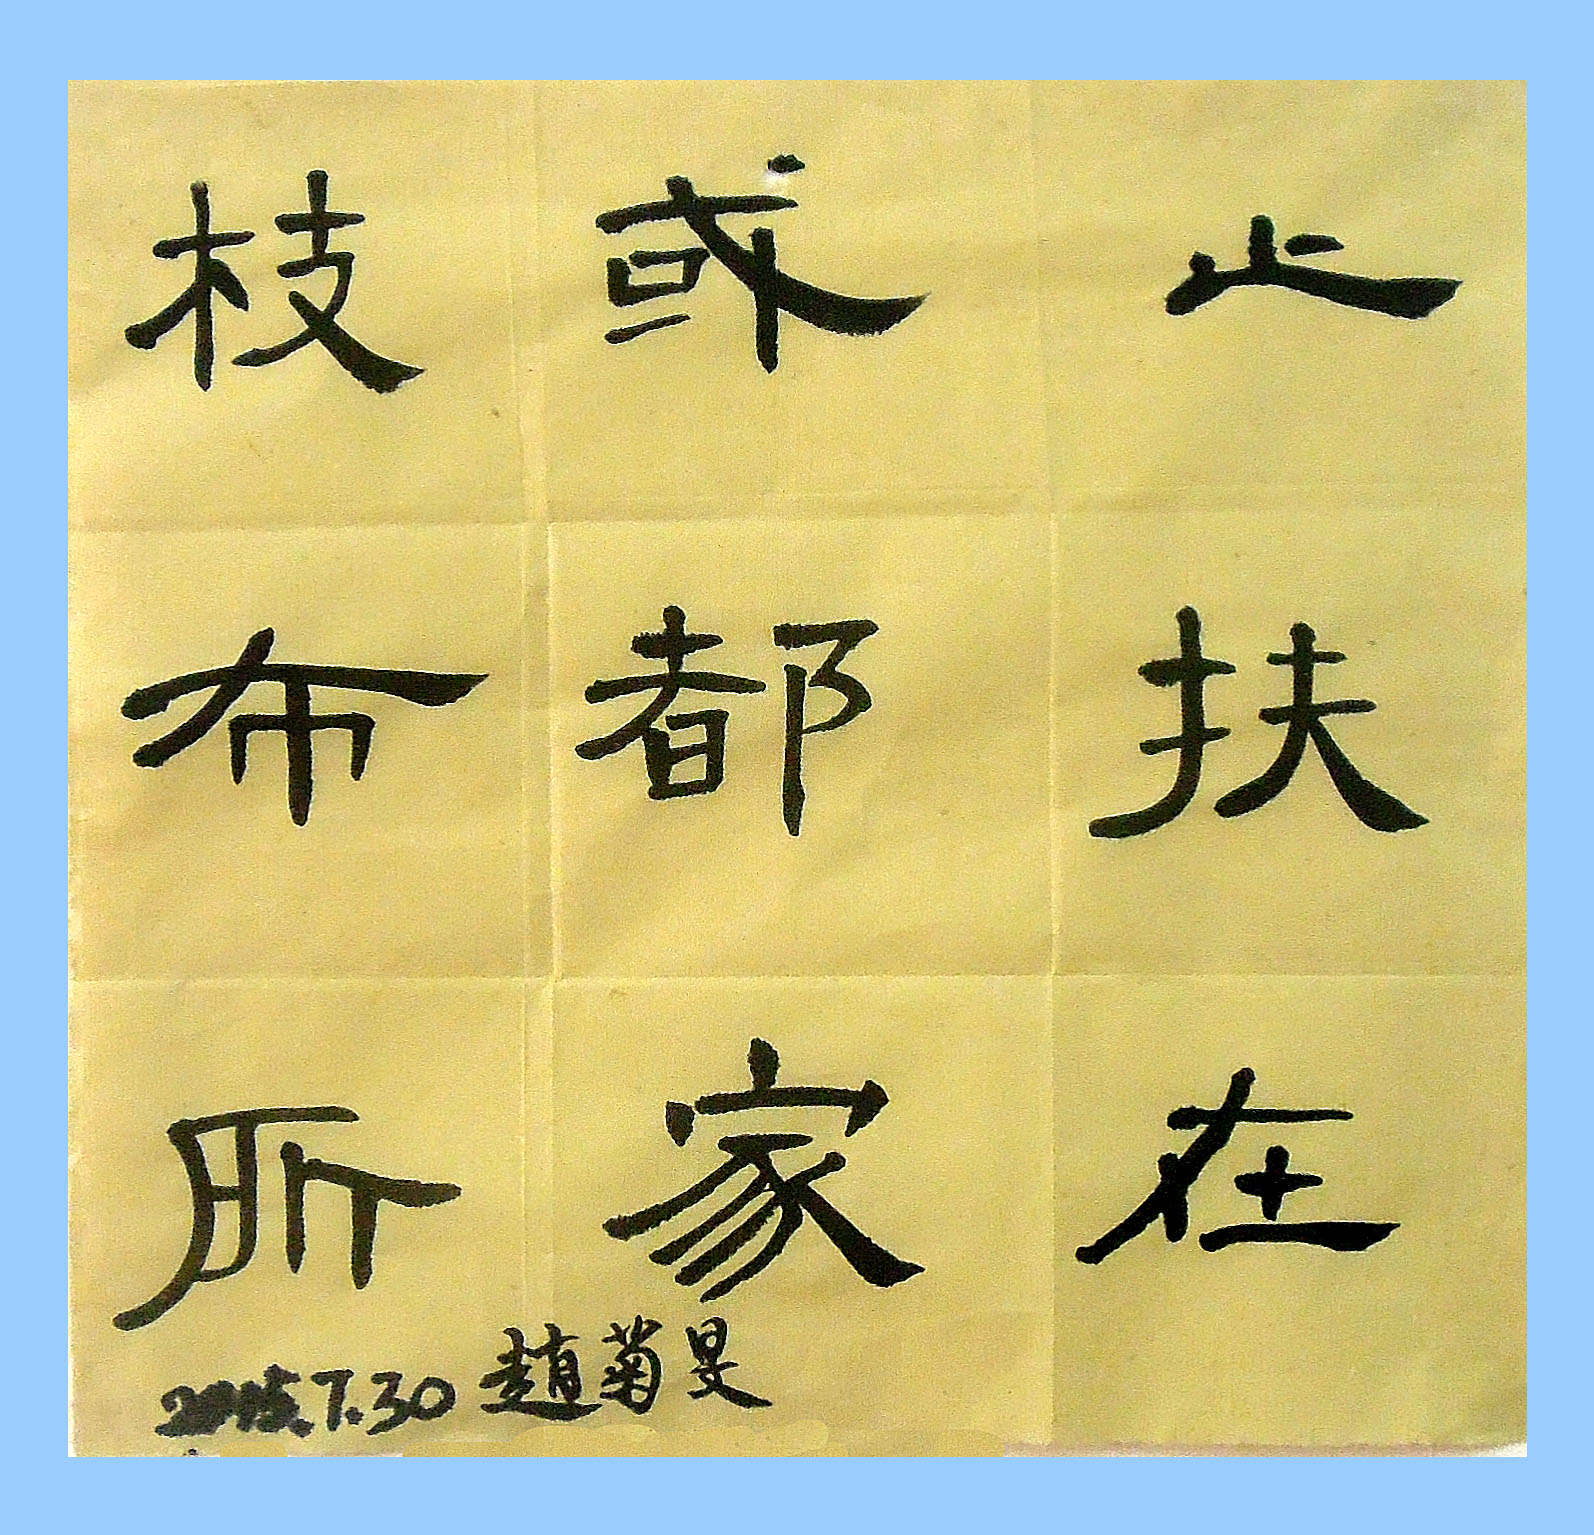 止扶在
或都家
枝布所
2015.7.30 趙菊旻